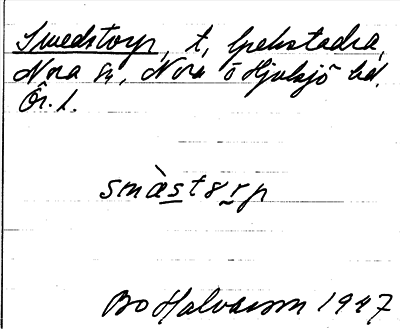 Smedstorp, t,
Nora sn, Nora o Hjulsjö hd.
Ör. l.
smàst8rp
Bo Halvarson 1947